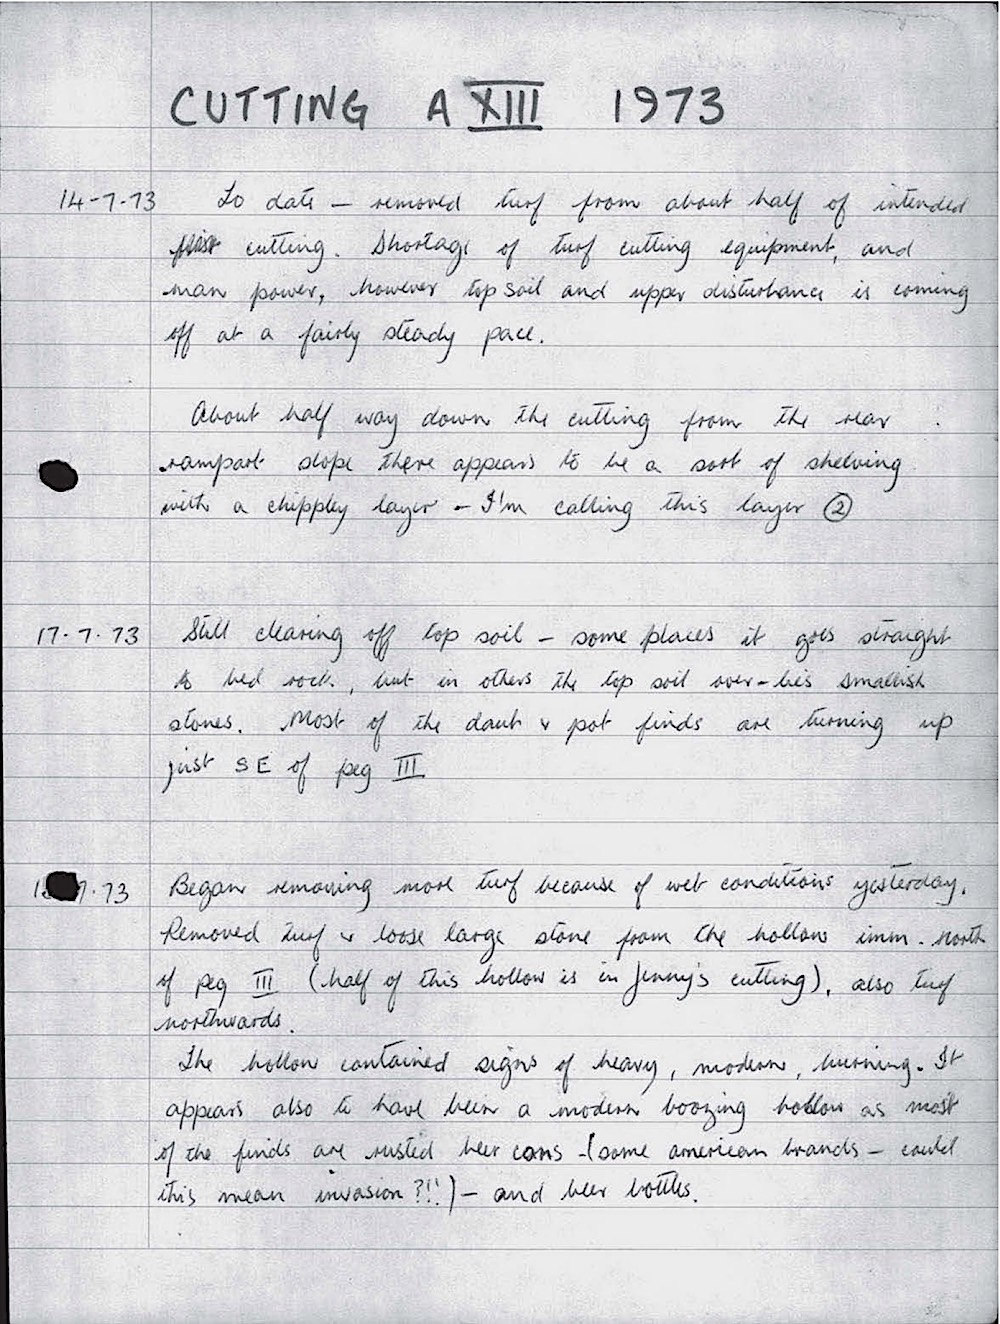 CUTTING A XIII 1973
14-7-73 To date — removed turf from about half of intended
first cutting. Shortage of turf cutting equipment, and
man power, however top soil and upper disturbance is coming
off at a fairly steady pace.
About half way down the cutting from the rear
rampart slope there appears to be a sort of shelving
with a chippley layer - I'm calling this layer ②
17.7.73 Still clearing off top soil — some places it goes straight
to bed rock, but in others the top soil over-lies smallish
stones. Most of the daub & pot finds are turning up
just SE of peg III
7.73 Began removing more turf because of wet conditions yesterday.
Removed turf & loose large stone from the hollow imm. north
of peg III (half of this hollow is in Jenny's cutting), also turf
northwards.
The hollow contained signs of heavy, modern, burning. It
appears also to have been a modern boozing hollow as most
of the finds are rusted beer cans - (some american brands — could
this mean invasion?!!) — and beer bottles.